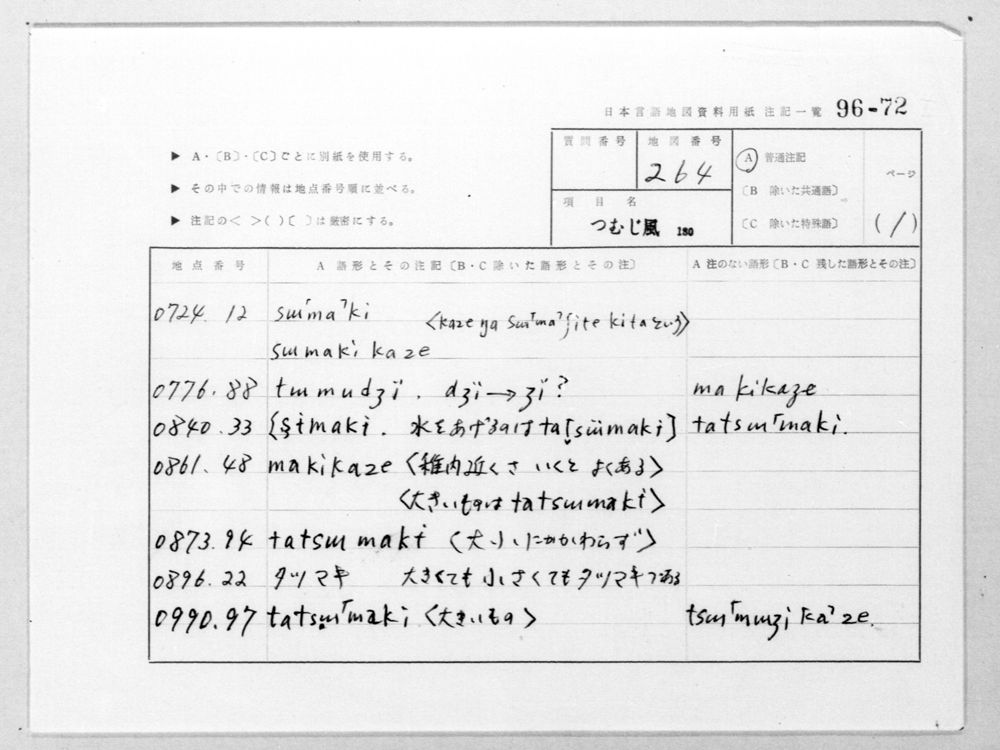 日本言語地図資料用紙 注記一覧 96-72
▶ A・〔B〕・〔C〕ごとに別紙を使用する。
▶ その中での情報は地点番号順に並べる。
▶ 注記の< >( )〔 〕は厳密にする。
質問番号 地図番号
264
項目名
つむじ風 180
A 普通注記
〔B 除いた共通語〕
〔C 除いた特殊語〕
ページ
(1)
地点番号 A 語形とその注記〔B・C除いた語形とその注〕 A 注のない語形〔B・C残した語形とその注〕
0724.12 sɯ「ma」ki <kaze ga sɯ「ma」ʃite kitaという>
sɯmaki kaze
0776.88 tɯmudʒï. dʒï→ʒï? makikaze
0840.33 [şimaki. 水をあげるのはta[sɯ̈maki] tatsɯ「maki.
0861.48 makikaze <稚内近くさ いくと よくある>
<大きいものはtatsɯmaki>
0873.94 tatsɯmaki <大小にかかわらず>
0896.22 タツマキ 大きくても小さくてもタツマキである
0990.97 tatsɯ「maki <大きいもの> tsɯ「mɯʒi「ka」ze.